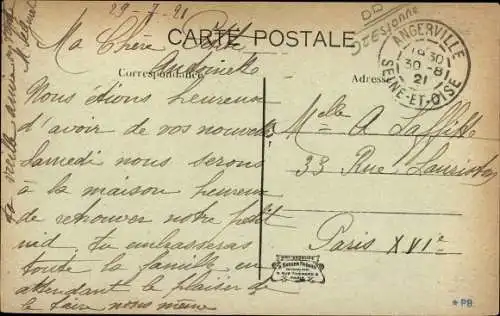 29-7-21
CARTE POSTALE
Ma Chère
Antoinette
Correspondance
Adresse
Nous étions heureux
d'avoir de vos nouvelles
Samedi nous serons
à la maison heureux
de retrouver notre petit
nid. tu embrasseras
toute la famille en
attendant le plaisir de
le faire nous même
Melle A Laffitte
33 Rue Lauriston
Paris XVIe
ANGERVILLE
19 30
30-8
21
SEINE-ET-OISE
*PB.